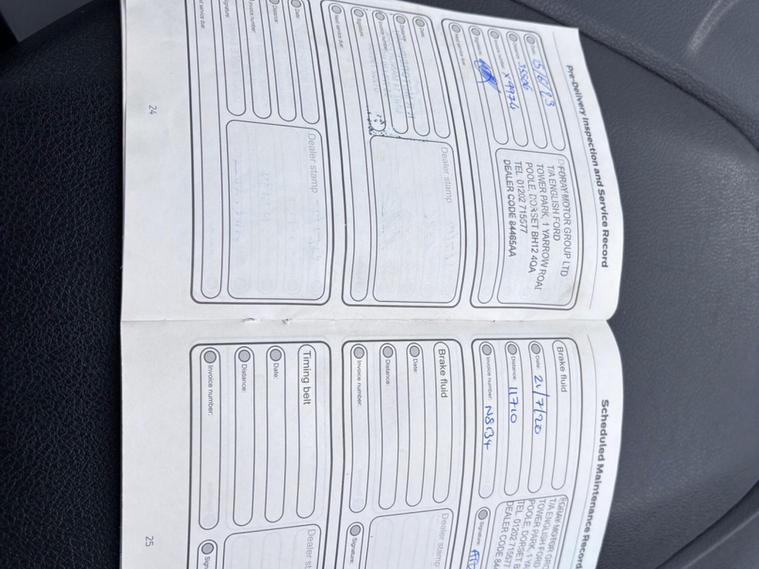 Pre-Delivery Inspection and Service Record
Date: 5/6/23
Distance: 35606
Invoice number: X9976
Signature:
Next service due:
FORAY MOTOR GROUP LTD
T/A ENGLISH FORD
TOWER PARK, 1 YARROW ROAD
POOLE, DORSET BH12 4QA
TEL. 01202 715577
DEALER CODE 84465AA
Date:
Distance:
Invoice number:
Signature:
Next service due:
Dealer stamp
Date:
Distance:
Invoice number:
Signature:
Next service due:
Dealer stamp
24
Scheduled Maintenance Record
Brake fluid
Date: 21/7/20
Distance: 11710
Invoice number: N8134
FORAY MOTOR GR
T/A ENGLISH FORD
TOWER PARK, 1 YA
POOLE, DORSET B
TEL. 01202 715577
DEALER CODE 84
Signature:
Brake fluid
Date:
Distance:
Invoice number:
Dealer stamp
Signature:
Timing belt
Date:
Distance:
Invoice number:
Dealer st
Sign
25